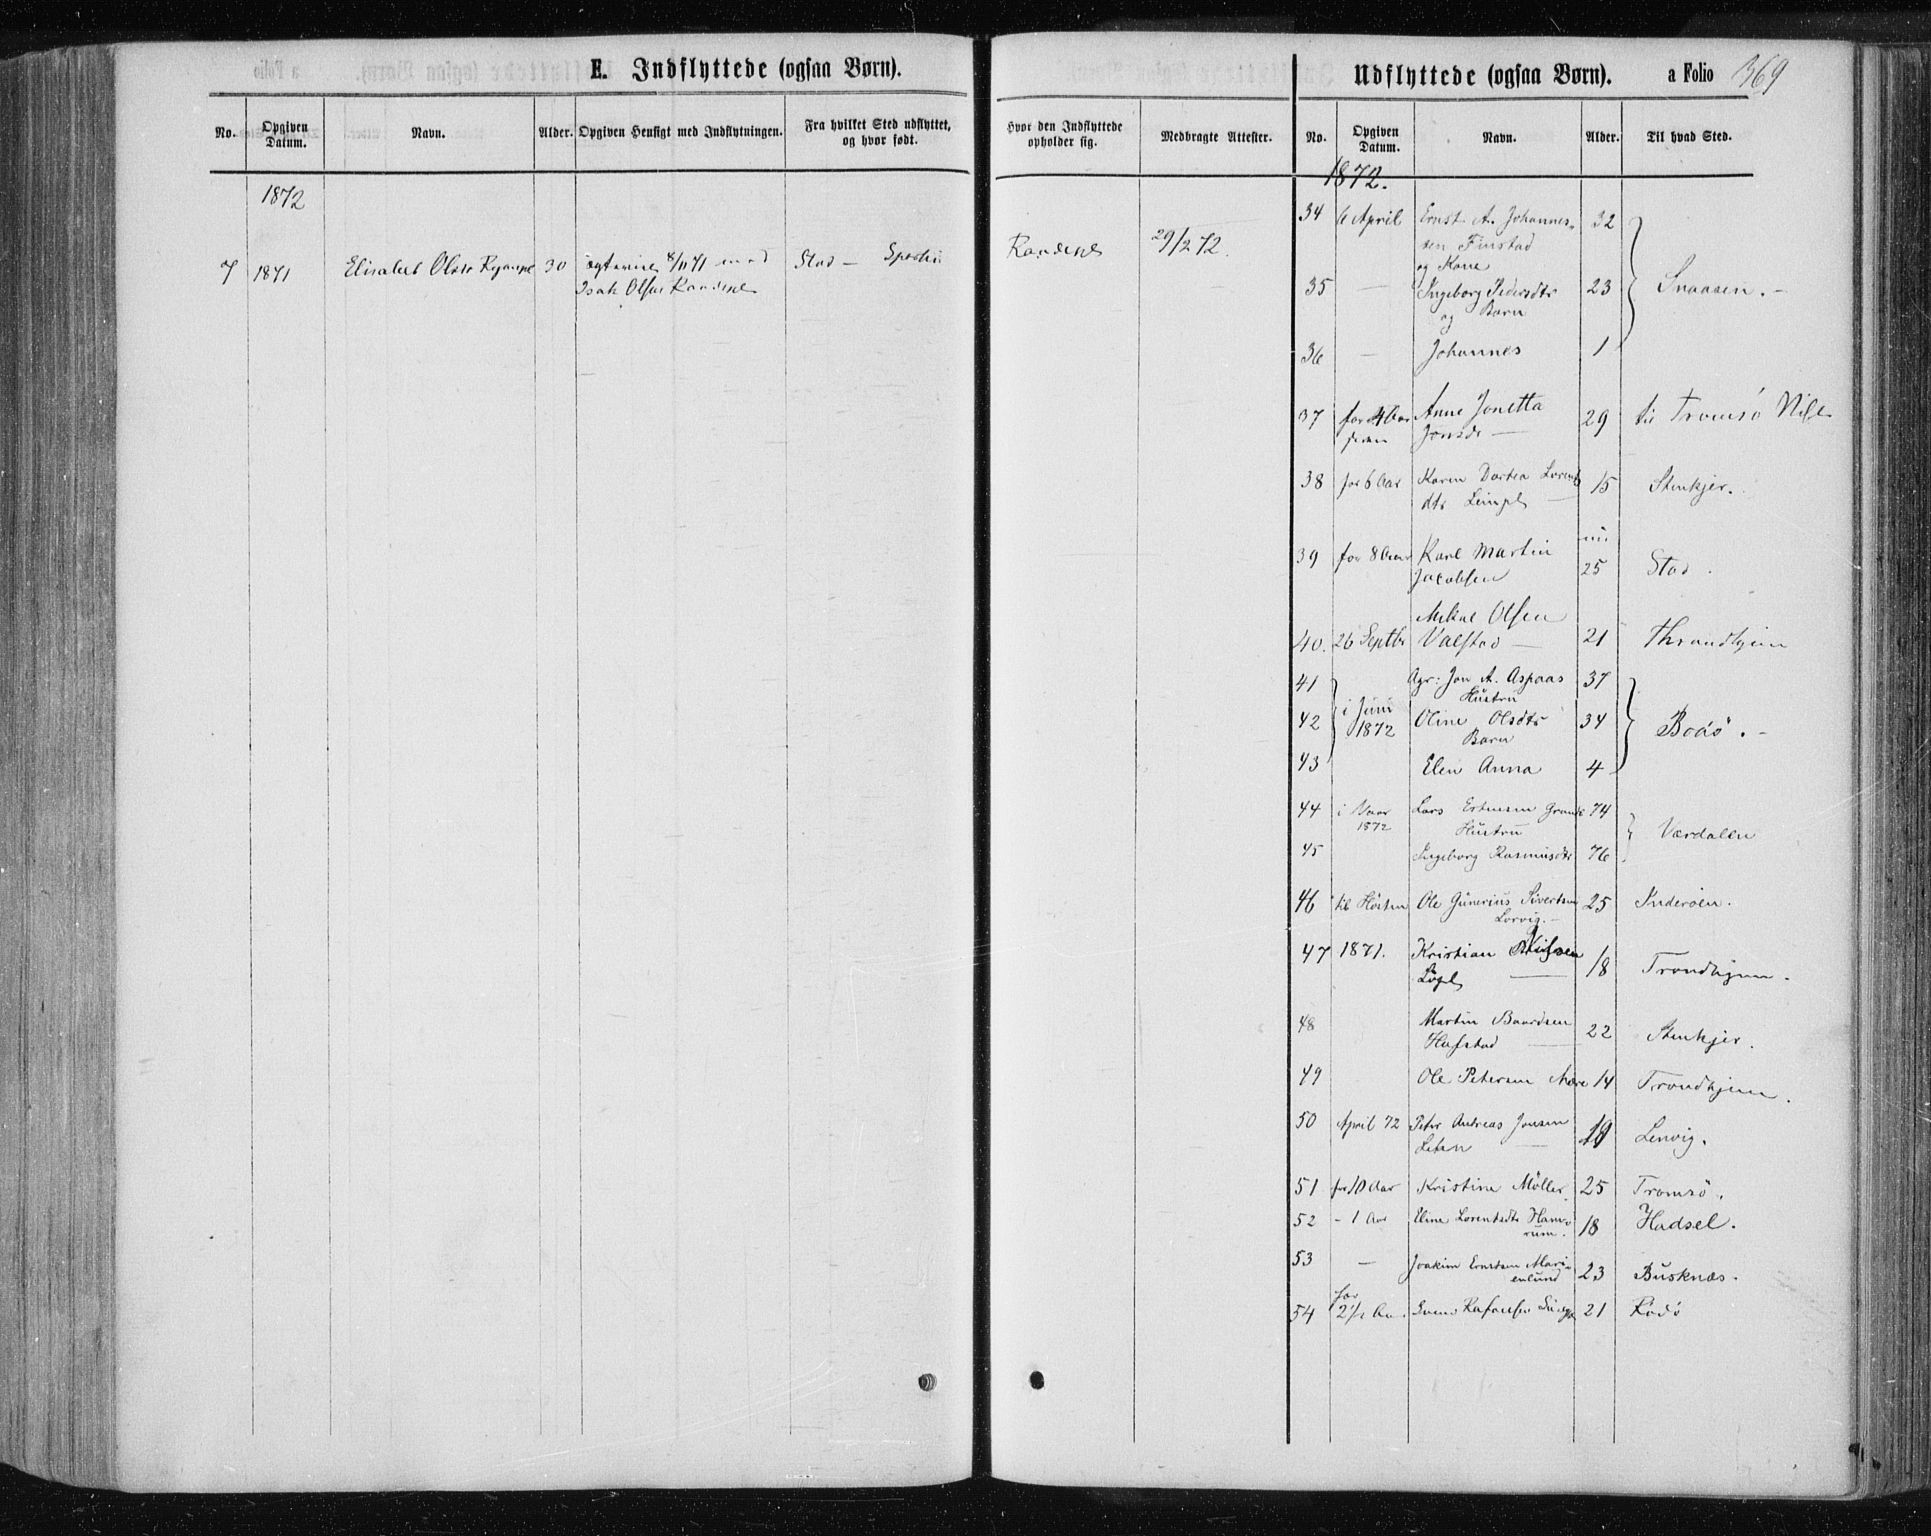 E. Indflyttede (ogsaa Børn).
No. Opgiven Datum. Navn. Alder. Opgiven Hensigt med Indflytningen. Fra hvilket Sted udflyttet, og hvor født.
1872
7 1871 Elisabet Olsdr 30 8/11 71 med Stod —
Isak Olsen
Hvor den Indflyttede opholder sig. Medbragte Attester.
29/2 72.
Udflyttede (ogsaa Børn). a Folio 369
No. Opgiven Datum. Navn. Alder. Til hvad Sted.
1872.
34 6 April Ernst A. Johannes- 32
sen Finstad
og Kone
35 — Ingeborg Pedersdtr 23 Snaasen. —
og Barn
36 — Johannes 1
37 for 4 Aar Anne Jonetta 29 til Tromsö
siden Jonsdr —
38 for 6 Aar Karen Dortea Lorents 15 Stenkjer.
dtr
39 for 8 Aar Karl Martin nu 25 Stod.
Jacobsen
Mikal Olsen
40. 26 Septbr Valstad — 21 Throndhjem
41 Jon A. Aspaas 37
Hustru
42 i Juni 1872 Oline Olsdtr 34 Bodö. —
Barn
43 Elen Anna 4
44 i Vaar 1872 Lars Estensen Grande 74
Hustru Værdalen
45 Ingeborg Rasmusdtr 76
46 til Hösten Ole Gunerius Sivertsen 25 Inderöen.
Lorvig. —
47 1871. Kristian 18 Trondhjem.
48 Martin Baardsen 22 Stenkjer.
Hafstad —
49 Ole Petersen Mære 14 Trondhjem.
50 April 72 Peter Andreas Jonsen 19 Lenvig.
51 for 10 Aar Kristine Möller 25 Tromsö.
52 – 1 Aar Eline Lorentsdtr Ham- 18 Hadsel.
rum.
53 — Joakim Ernstsen Mari- 23 Busknæs.
enlund
for
54 2 1/2 Aar 21 Rödö